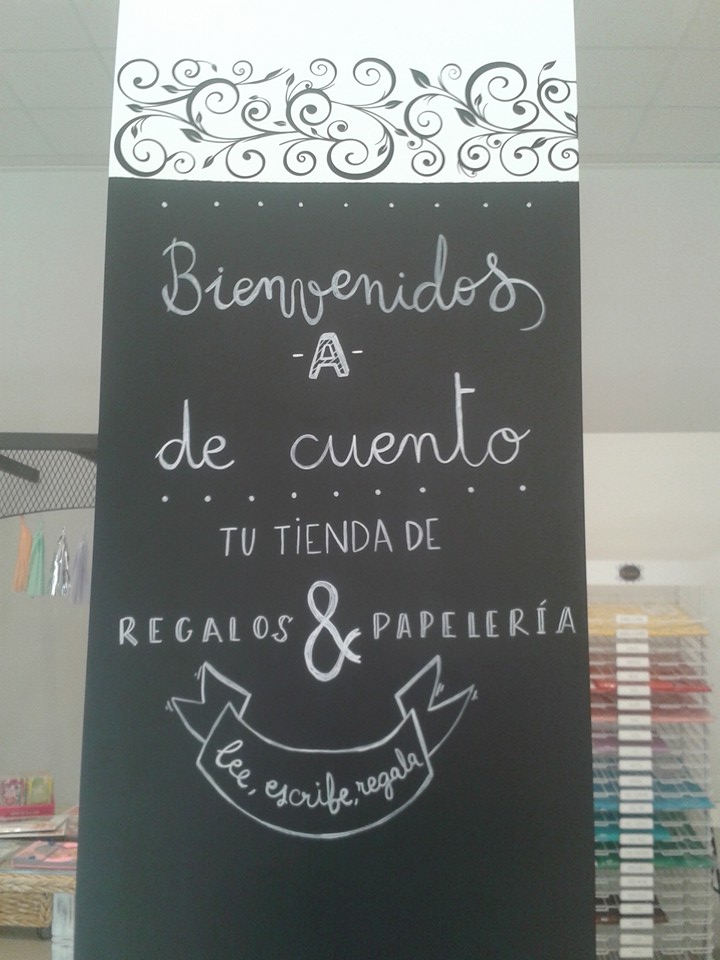 Bienvenidos
-A-
de cuento
TU TIENDA DE
REGALOS & PAPELERÍA
lee, escribe, regala